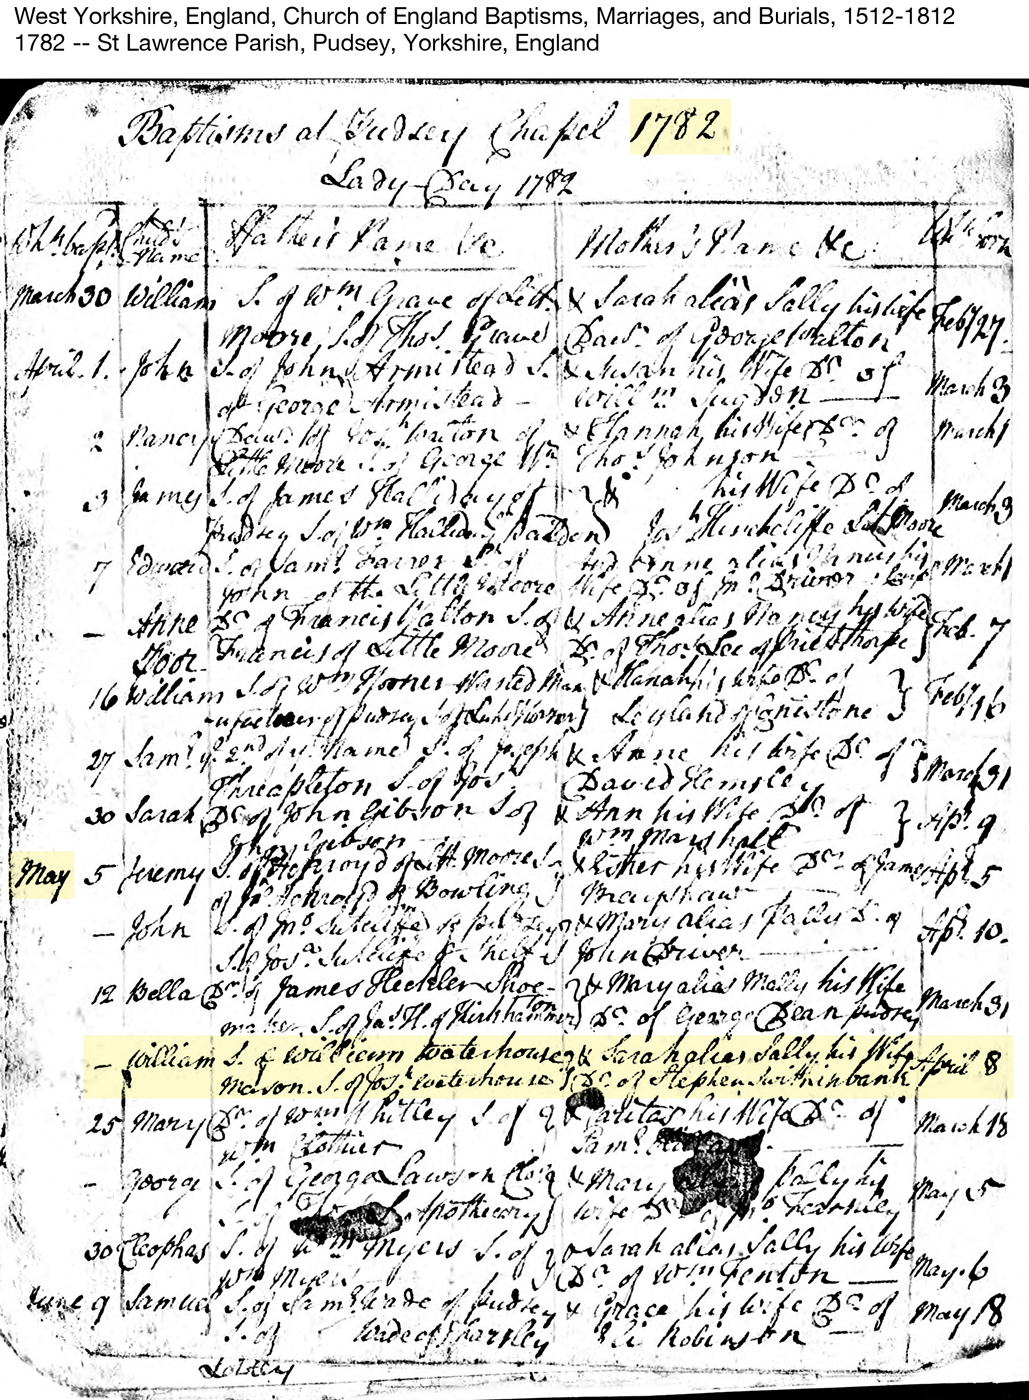 West Yorkshire, England, Church of England Baptisms, Marriages, and Burials, 1512-1812
1782 -- St Lawrence Parish, Pudsey, Yorkshire, England
Baptisms at Pudsey Chapel 1782
Lady-Day 1782
Wh.ⁿ bapt. Child's Name Father's Name &c Mother's Name &c Wh.ⁿ born
March 30 William S. of Wm Grave of Litt. & Sarah alias Sally his wife Feby 27.
Moore, S. of Thos. Grave Dau.r of George Walton
April. 1. John S. of John Armistead S. & Susan his Wife Dr. of March 3
of George Armistead — Willm. Sugden —
2 Nancy Daur. of Walton of & Hannah his Wife Dr. of March 1
Little Moore S. of George Wn. Thos. Johnson
3 James S. of James Halliday of & his Wife Dr. of March 3
Pudsey S. of Wm. Josh. Hinchcliffe Moore
7 Edward S. of Saml. Farrer S. of alias his March 1
John of the Little Moore Wife Dr. of Jno. Driver
— Anne Dr. of Francis Walton S. of & Anne alias Nancy his wife Feb. 7
Francis of Little Moore Dr. of Thos. Lee of Priesthorpe
16 William S. of Wm Horner Man & Hanah his wife Dr. of Feby 16
ufacturer of Pudsey S. of Luke Horner Leyland of
27 Saml. ye. 2nd of ye. Name S. of Joseph & Anne his wife Dr. of March 31
Threapleton S. of Jos. David Hemsley
30 Sarah Dr. of John Gibson S. of & Ann his Wife Dr. of Apl. 9
John Gibson Wm Marshall
May 5 Jeremy S. of of Litt. Moore S. & Esther his Wife Dr. of James Apl. 5
of of Bowling
— John S. of Jno. Sutcliffe of Pudsey & Mary alias Dr. of Apl. 10.
S. of Josa. Sutcliffe of Shelf John Driver —
12 Bella Dr. of James Heckler Shoe- & Mary alias Molly his Wife March 31
maker. S. of Jas. H. of Dr. of George Dean Pudsey
— William S. of William Waterhouse & Sarah alias Sally his Wife April 8
Mason. S. of Josh. Waterhouse Dr. of Stephen Swithinbank
25 Mary Dr. of Wm Whitley S. of & Caritas his Wife Dr. of March 18
Wm Clothier Saml.
— George S. of George Lawson & Mary his May 5
S. of Apothecary wife Dr. of Jno. Fearnley
30 Cleophas S. of Wm Myers S. of & Sarah alias Sally his Wife May. 6
Wm Myers Dr. of Wm Fenton —
June 9 Samuel S. of Saml. Wade of Pudsey & Grace his wife Dr. of May 18
S. of Wade of Robinson —